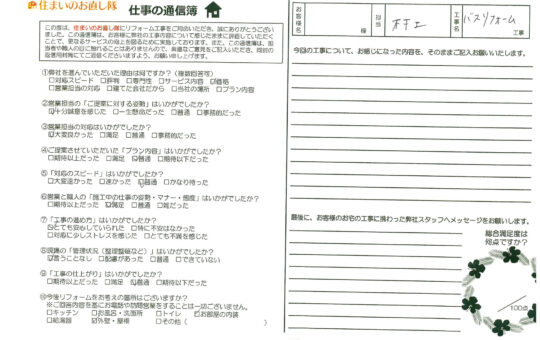 住まいのお直し隊 仕事の通信簿
この度は、住まいのお直し隊にリフォーム工事をご用命いただき、誠にありがとうござい
ました。この通信簿は、お客様に弊社の工事内容について感じたままに評価していただく
ことで、更なるサービスの向上を図るために実施しております。また、この通信簿は、担
当者や職人の目に触れることはありませんので、率直なご意見をご記入いただき、同封の
返信用封筒にてご返送くださいますよう、お願い申し上げます。
①弊社を選んでいただいた理由は何ですか?(複数回答可)
□対応スピード □評判 □専門性 □サービス内容 ☑価格
□営業担当の対応 □建てた会社だから □当社の場所 □プラン内容
②営業担当の「ご提案に対する姿勢」はいかがでしたか?
☑十分誠意を感じた □一生懸命だった □普通 □事務的だった
③営業担当の対応はいかがでしたか?
☑大変良かった □満足 □普通 □事務的だった
④ご提案させていただいた「プラン内容」はいかがでしたか?
□期待以上だった □満足 ☑普通 □期待以下だった
⑤「対応のスピード」はいかがでしたか?
□大変速かった □速かった ☑普通 □かなり待った
⑥営業と職人の「施工中の仕事の姿勢・マナー・態度」はいかがでしたか?
□期待以上だった ☑満足 □普通 □雑だった
⑦「工事の進め方」はいかがでしたか?
☑とても安心していられた □特に不安はなかった
□対応に少しストレスを感じた □とても不満を感じた
⑧現場の「管理状況(整理整頓など)」はいかがでしたか?
☑言うことなし □配慮があった □普通 □できていない
⑨「工事の仕上がり」はいかがでしたか?
□期待以上だった ☑満足 □普通 □期待以下だった
⑩今後リフォームをお考えの箇所はございますか?
※ご回答内容を基にお電話や訪問営業をすることは一切ございません。
□キッチン □お風呂・洗面所 □トイレ ☑お部屋の内装
□給湯器 ☑外壁・屋根 □その他( )
お客様名 様 担当 工事名 バスリフォーム 工事
今回の工事について、お感じになった内容を、そのままご記入お願いいたします。
最後に、お客様のお宅の工事に携わった弊社スタッフへメッセージをお願いします。
総合満足度は
何点ですか?
/100点